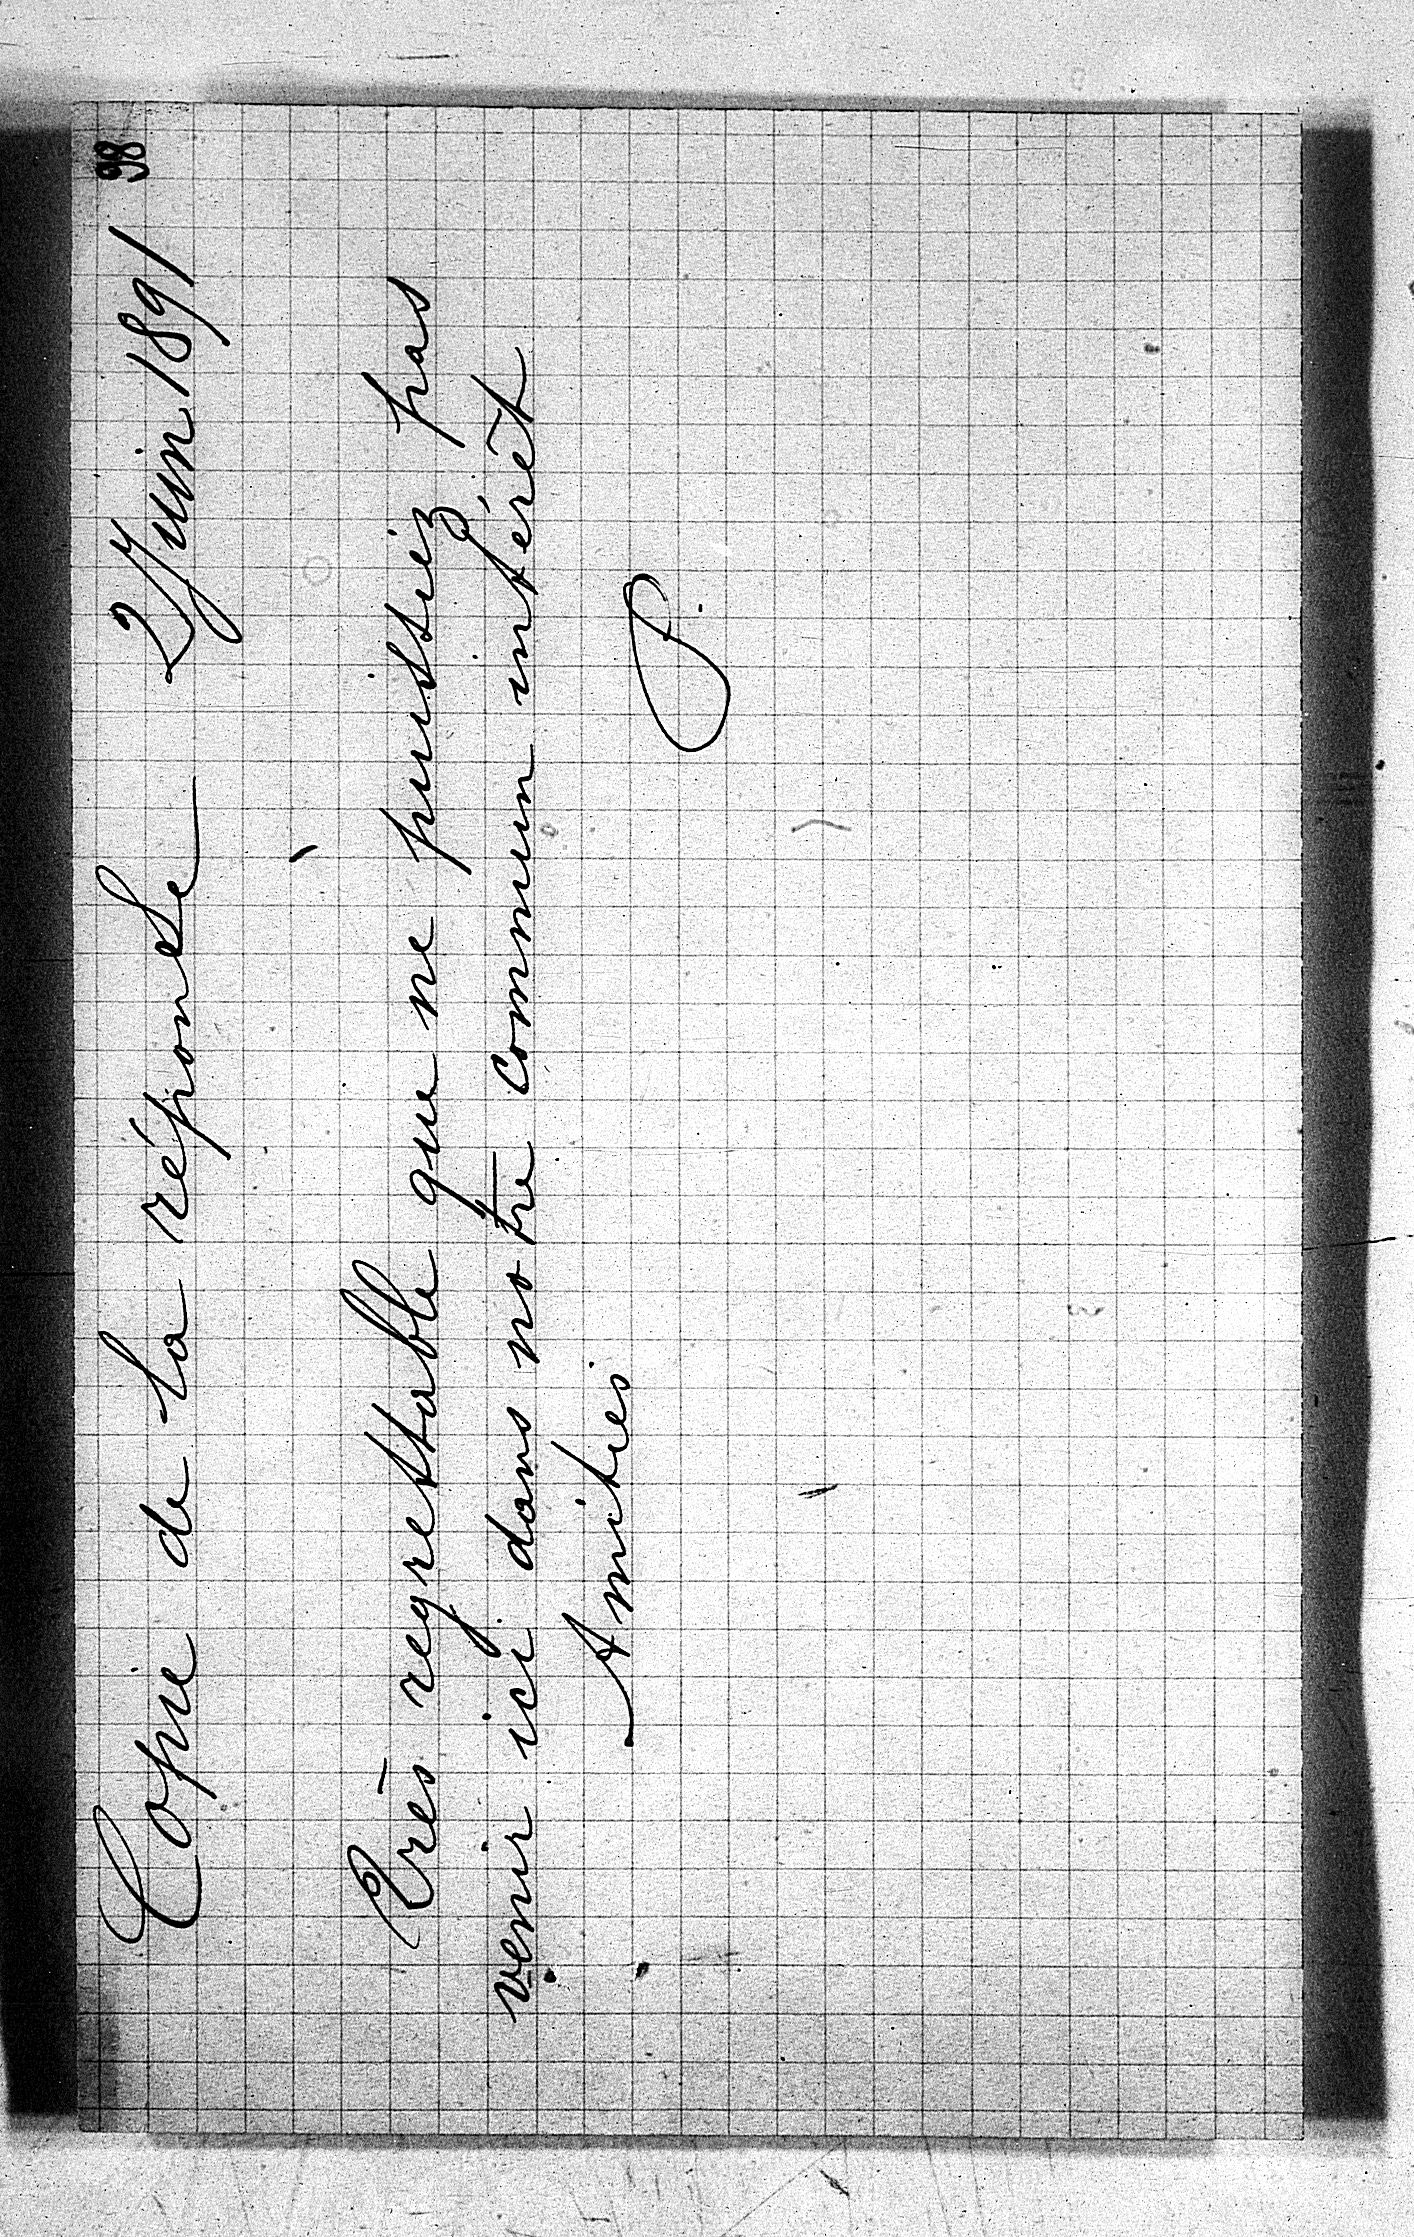 98
Copie de la réponse 2 Juin 1891
Très regrettable que ne puissiez pas
venir ici dans notre commun intérêt
Amitiés